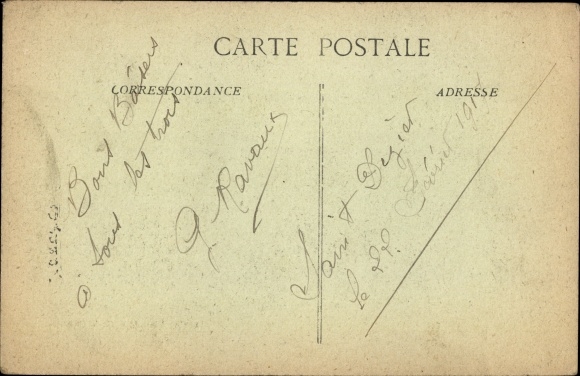 CARTE POSTALE
CORRESPONDANCE
ADRESSE
Bons Baisers
à tous les trois
G. Ravaux
Saint
le 22 Février 191